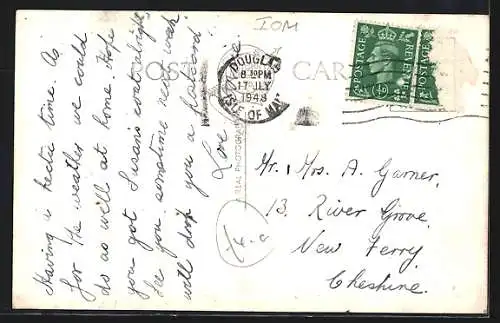 IOM
POST CARD
DOUGLAS
8 PM
17 JLY
1948
ISLE OF MAN
POSTAGE
REVENUE
½D
POSTAGE
REAL PHOTOGRAPH
Having a hectic time. As
for the weather we could
do as well at home. Hope
you got Susans coat alright
See you sometime next week
will drop you a postcard
Love
Mr. Mrs. A. Garner,
13. River Grove.
New Ferry.
Cheshire.